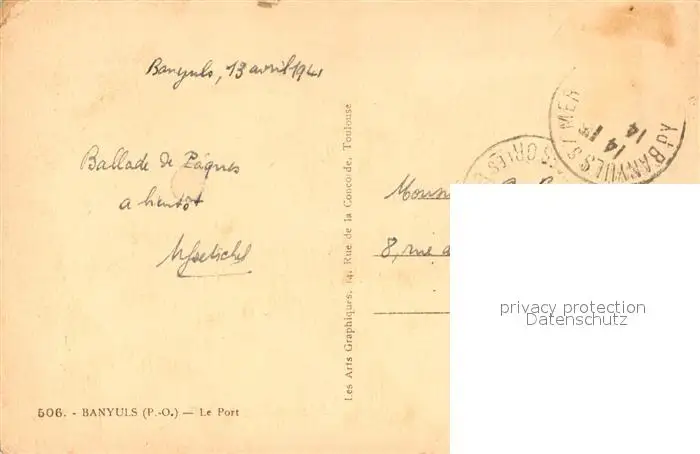 Banyuls, 13 avril 1941
Ballade de Pâques
a bientôt
506. - BANYULS (P.-O.) — Le Port
Les Arts Graphiques, 14, Rue de la Concorde, Toulouse
BANYULS S/ MER
14
14
8, rue
privacy protection
Datenschutz